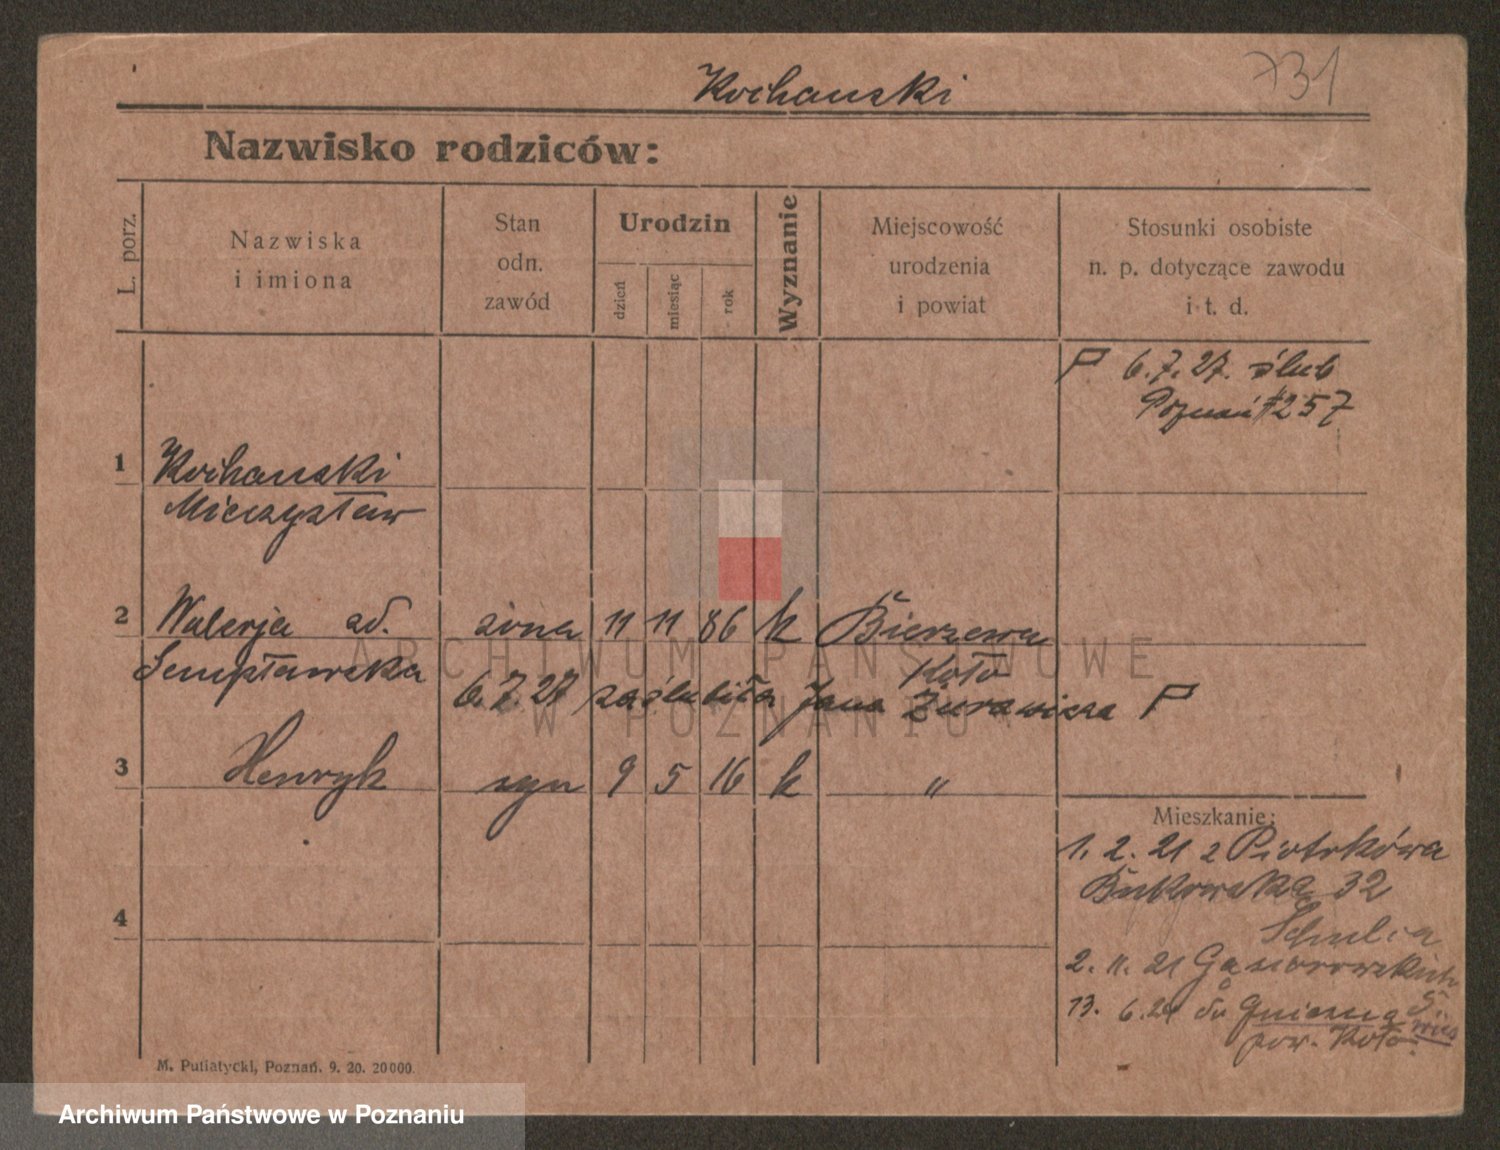 Kochanski
731
Nazwisko rodziców:
L. porz.
Nazwiska
i imiona
Stan
odn.
zawód
Urodzin
dzień
miesiąc
rok
Wyznanie
Miejscowość
urodzenia
i powiat
Stosunki osobiste
n. p. dotyczące zawodu
i t. d.
6.7.27. ślub
Poznań 257
1 Kochanski
Mieczysław
2 Walerja żona 11 11 86 k
Koło
6.7.27 zaślubiła Jana Żurawicza
3 Henryk syn 9 5 16 k "
Mieszkanie:
1. 2. 21 z Piotrkówa
Bukowska 32
2. 11. 21 Gąsiorowskich
13. 6.24 do
pow. Koło
4
M. Putiatycki, Poznań. 9. 20. 20000.
ARCHIWUM PAŃSTWOWE
W POZNANIU
Archiwum Państwowe w Poznaniu